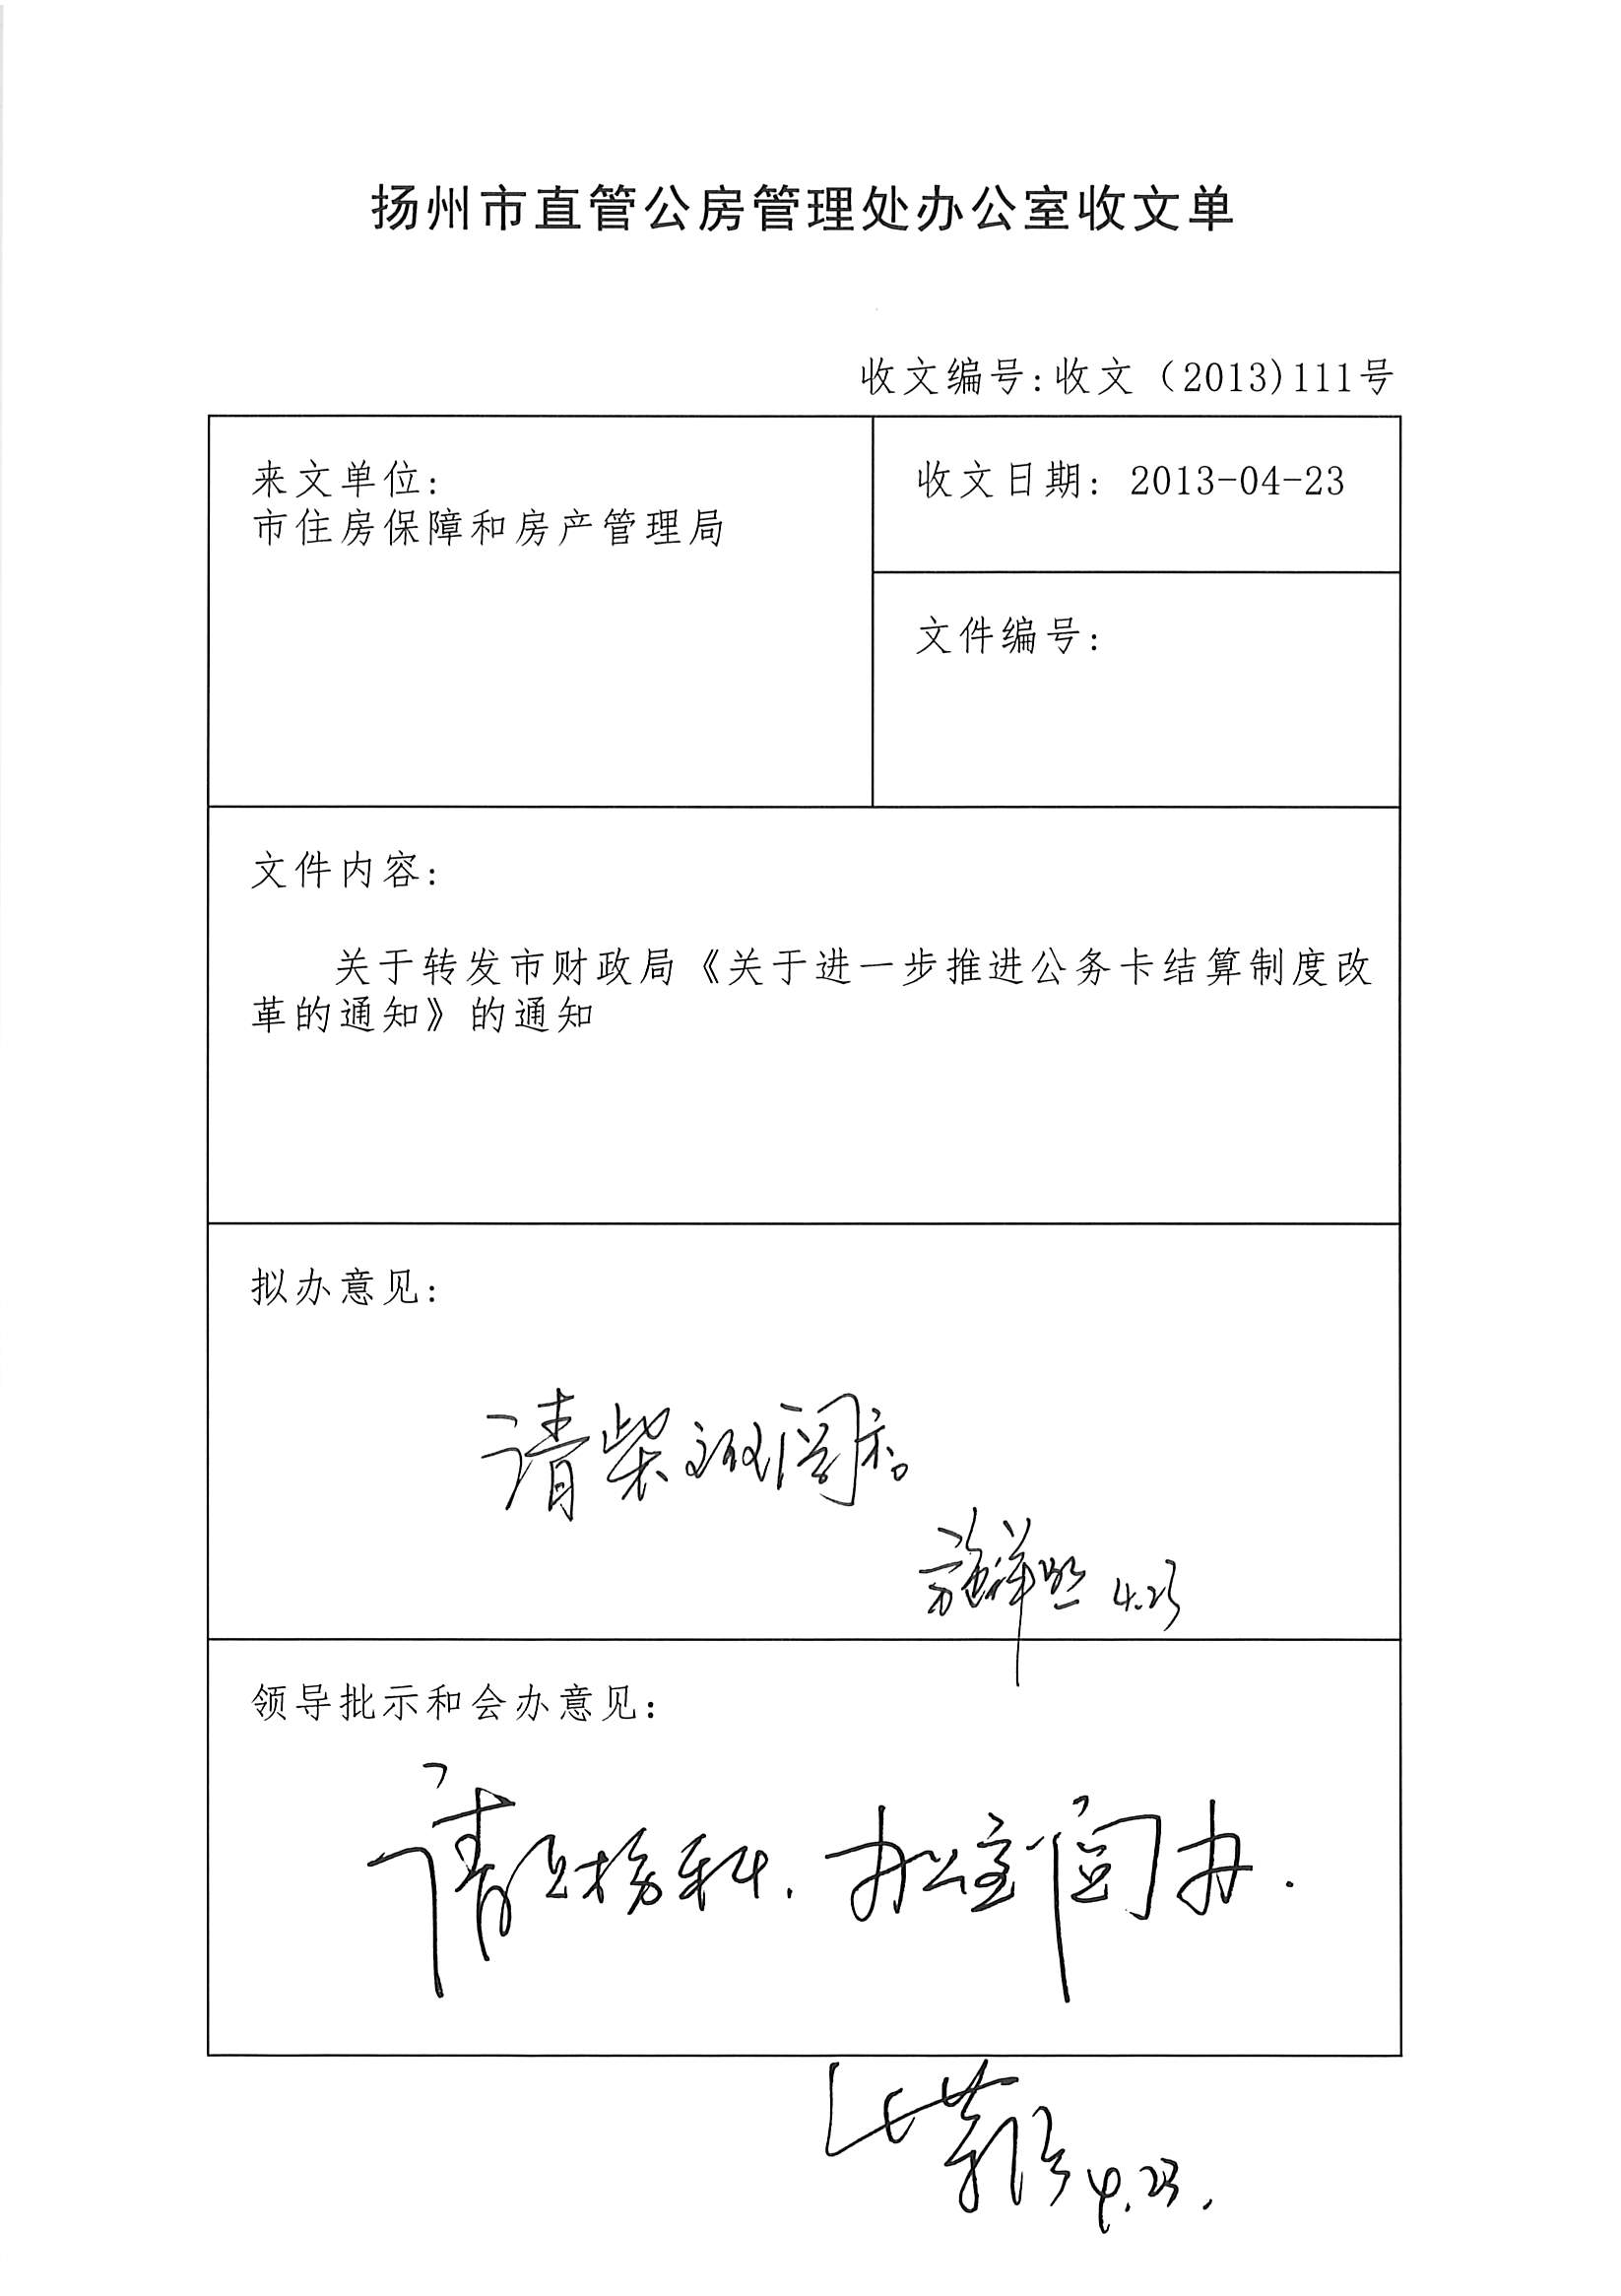 扬州市直管公房管理处办公室收文单
收文编号:收文（2013)111号
来文单位:
市住房保障和房产管理局
收文日期: 2013-04-23
文件编号:
文件内容:
关于转发市财政局《关于进一步推进公务卡结算制度改
革的通知》的通知
拟办意见:
请柴 阅示。
4.23
领导批示和会办意见:
请财务科.办公室阅办.
4.23.